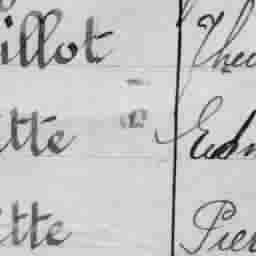 illot Theo
itte Edm
itte Pier